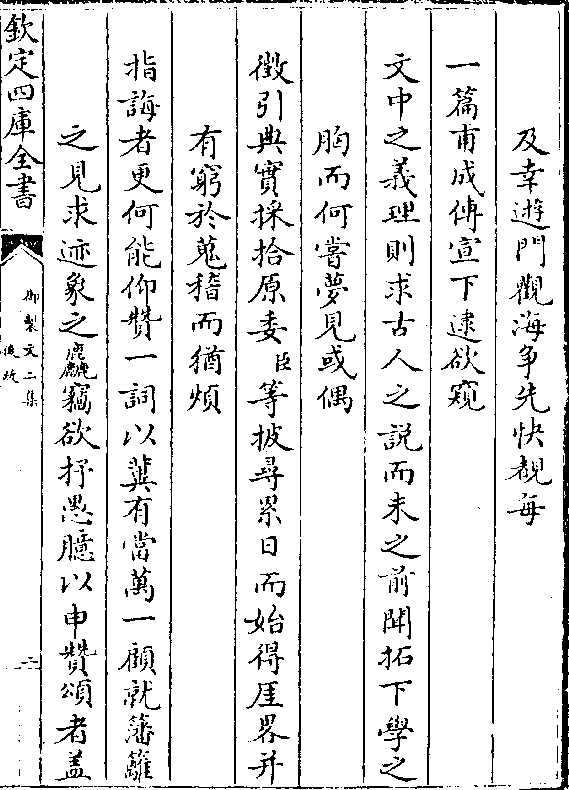 及幸遊門觀海争先快覩每
一篇甫成傳宣下逮欲窺
文中之義理則求古人之説而未之前聞拓下學之
胸而何嘗夢見或偶
徵引典實採拾原委臣等披尋累日而始得厓畧并
有窮於蒐稽而猶煩
指誨者更何能仰贊一詞以冀有當萬一顧就籓籬
之見求迹象之麤竊欲抒愚臆以申贊頌者盖
欽定四庫全書
御製文二集
後跋
二